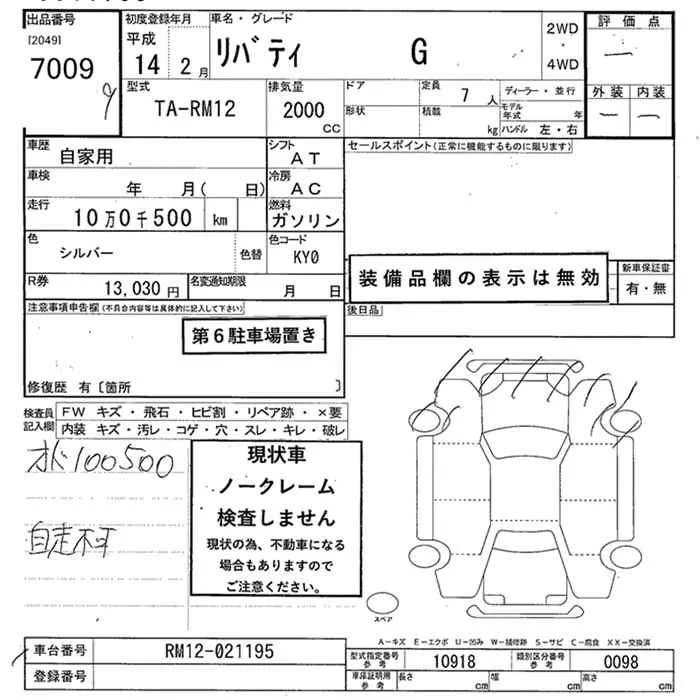 出品番号 初度登録年月 車名・グレード 評価点
[2049] 平成 14 2月 リバティ G 2WD・4WD 一
7009 型式 排気量 ドア 定員 7人 ディーラー・並行 外装 内装
TA-RM12 2000cc 形状 積載 kg モデル年式 年 一 一
ハンドル 左・右
車歴 自家用 シフト AT セールスポイント(正常に機能するものに限ります)
車検 年 月( 日) 冷房 AC
走行 10万0千500 km 燃料 ガソリン
色 シルバー 色替 色コード KY0
装備品欄の表示は無効 新車保証書 有・無
R券 13,030円 名変通知期限 月 日
注意事項申告欄(不具合内容等は具体的に記入して下さい) 後日品
第6駐車場置き
修復歴 有〔箇所 〕
検査員記入欄 FW キズ・飛石・ヒビ割・リペア跡・×要
内装 キズ・汚レ・コゲ・穴・スレ・キレ・破レ
オド100500
自走不可
現状車
ノークレーム
検査しません
現状の為、不動車になる
場合もありますので
ご注意ください。
スペア
A-キズ E-エクボ U-凹み W-補修跡 S-サビ C-腐食 XX-交換済
車台番号 RM12-021195 型式指定番号 参考 10918 類別区分番号 参考 0098
登録番号 車庫証明用 参考 長さ cm 幅 cm 高さ cm